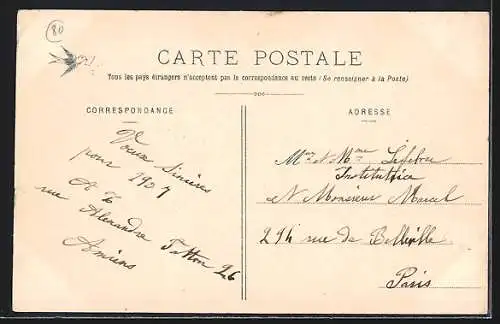 80
CARTE POSTALE
Tous les pays étrangers n'acceptent pas la correspondance au recto (Se renseigner à la Poste)
CORRESPONDANCE
ADRESSE
Voeux Sincères
pour 1907
rue Alexandre Fatton 26
Amiens
Mr et Mme Lefebre
Institutrice
et Monsieur Marcel
294 rue de Belleville
Paris